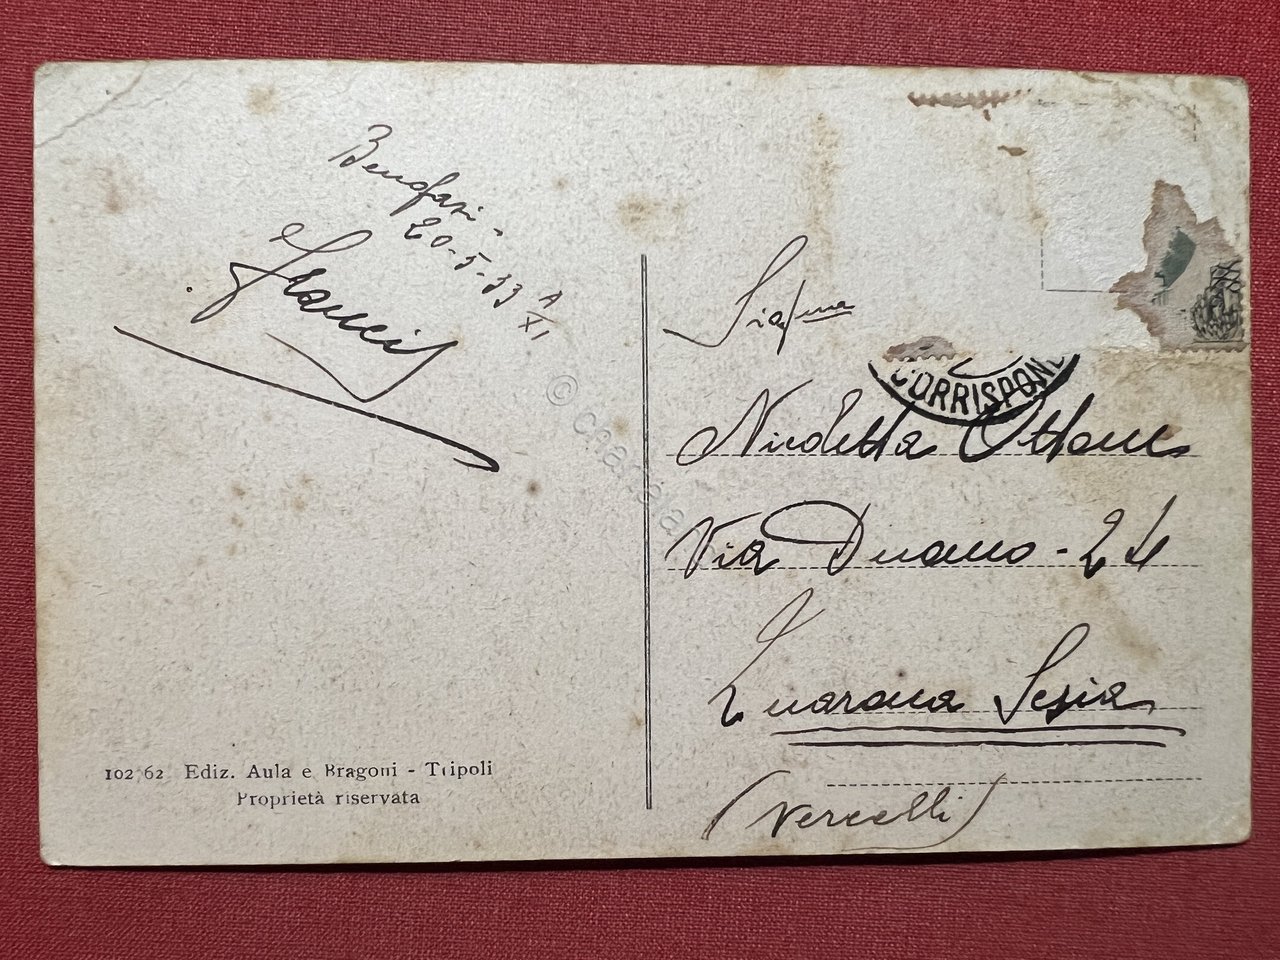 Bengasi -
20-5-33 A/XI
Francis
Sig.ma
CORRISPOND
Nicoletta
Via Duomo - 24
Quarona Sesia
(Vercelli)
102 62 Ediz. Aula e Bragoni - Tripoli
Proprietà riservata